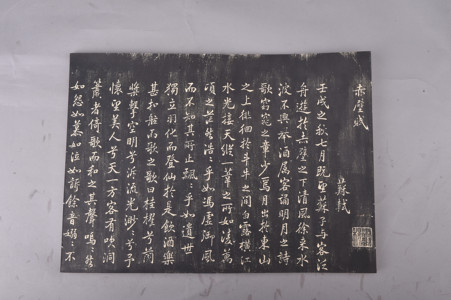 赤壁賦
蘇軾
壬戌之秋七月既望蘇子与客泛
舟遊於赤壁之下清風徐來水
波不興舉酒属客誦明月之詩
歌窈窕之章少焉月出於東山
之上徘徊於斗牛之間白露橫江
水光接天縱一葦之所如凌萬
頃之茫然浩々乎如馮虛御風
而不知其所止飄々乎如遺世
獨立羽化而登仙於是飲酒樂
甚扣舷而歌之歌曰桂櫂兮蘭
槳擊空明兮泝流光渺々兮予
懷望美人兮天一方客有吹洞
簫者倚歌而和之其聲嗚々然
如怨如慕如泣如訴餘音嫋々不